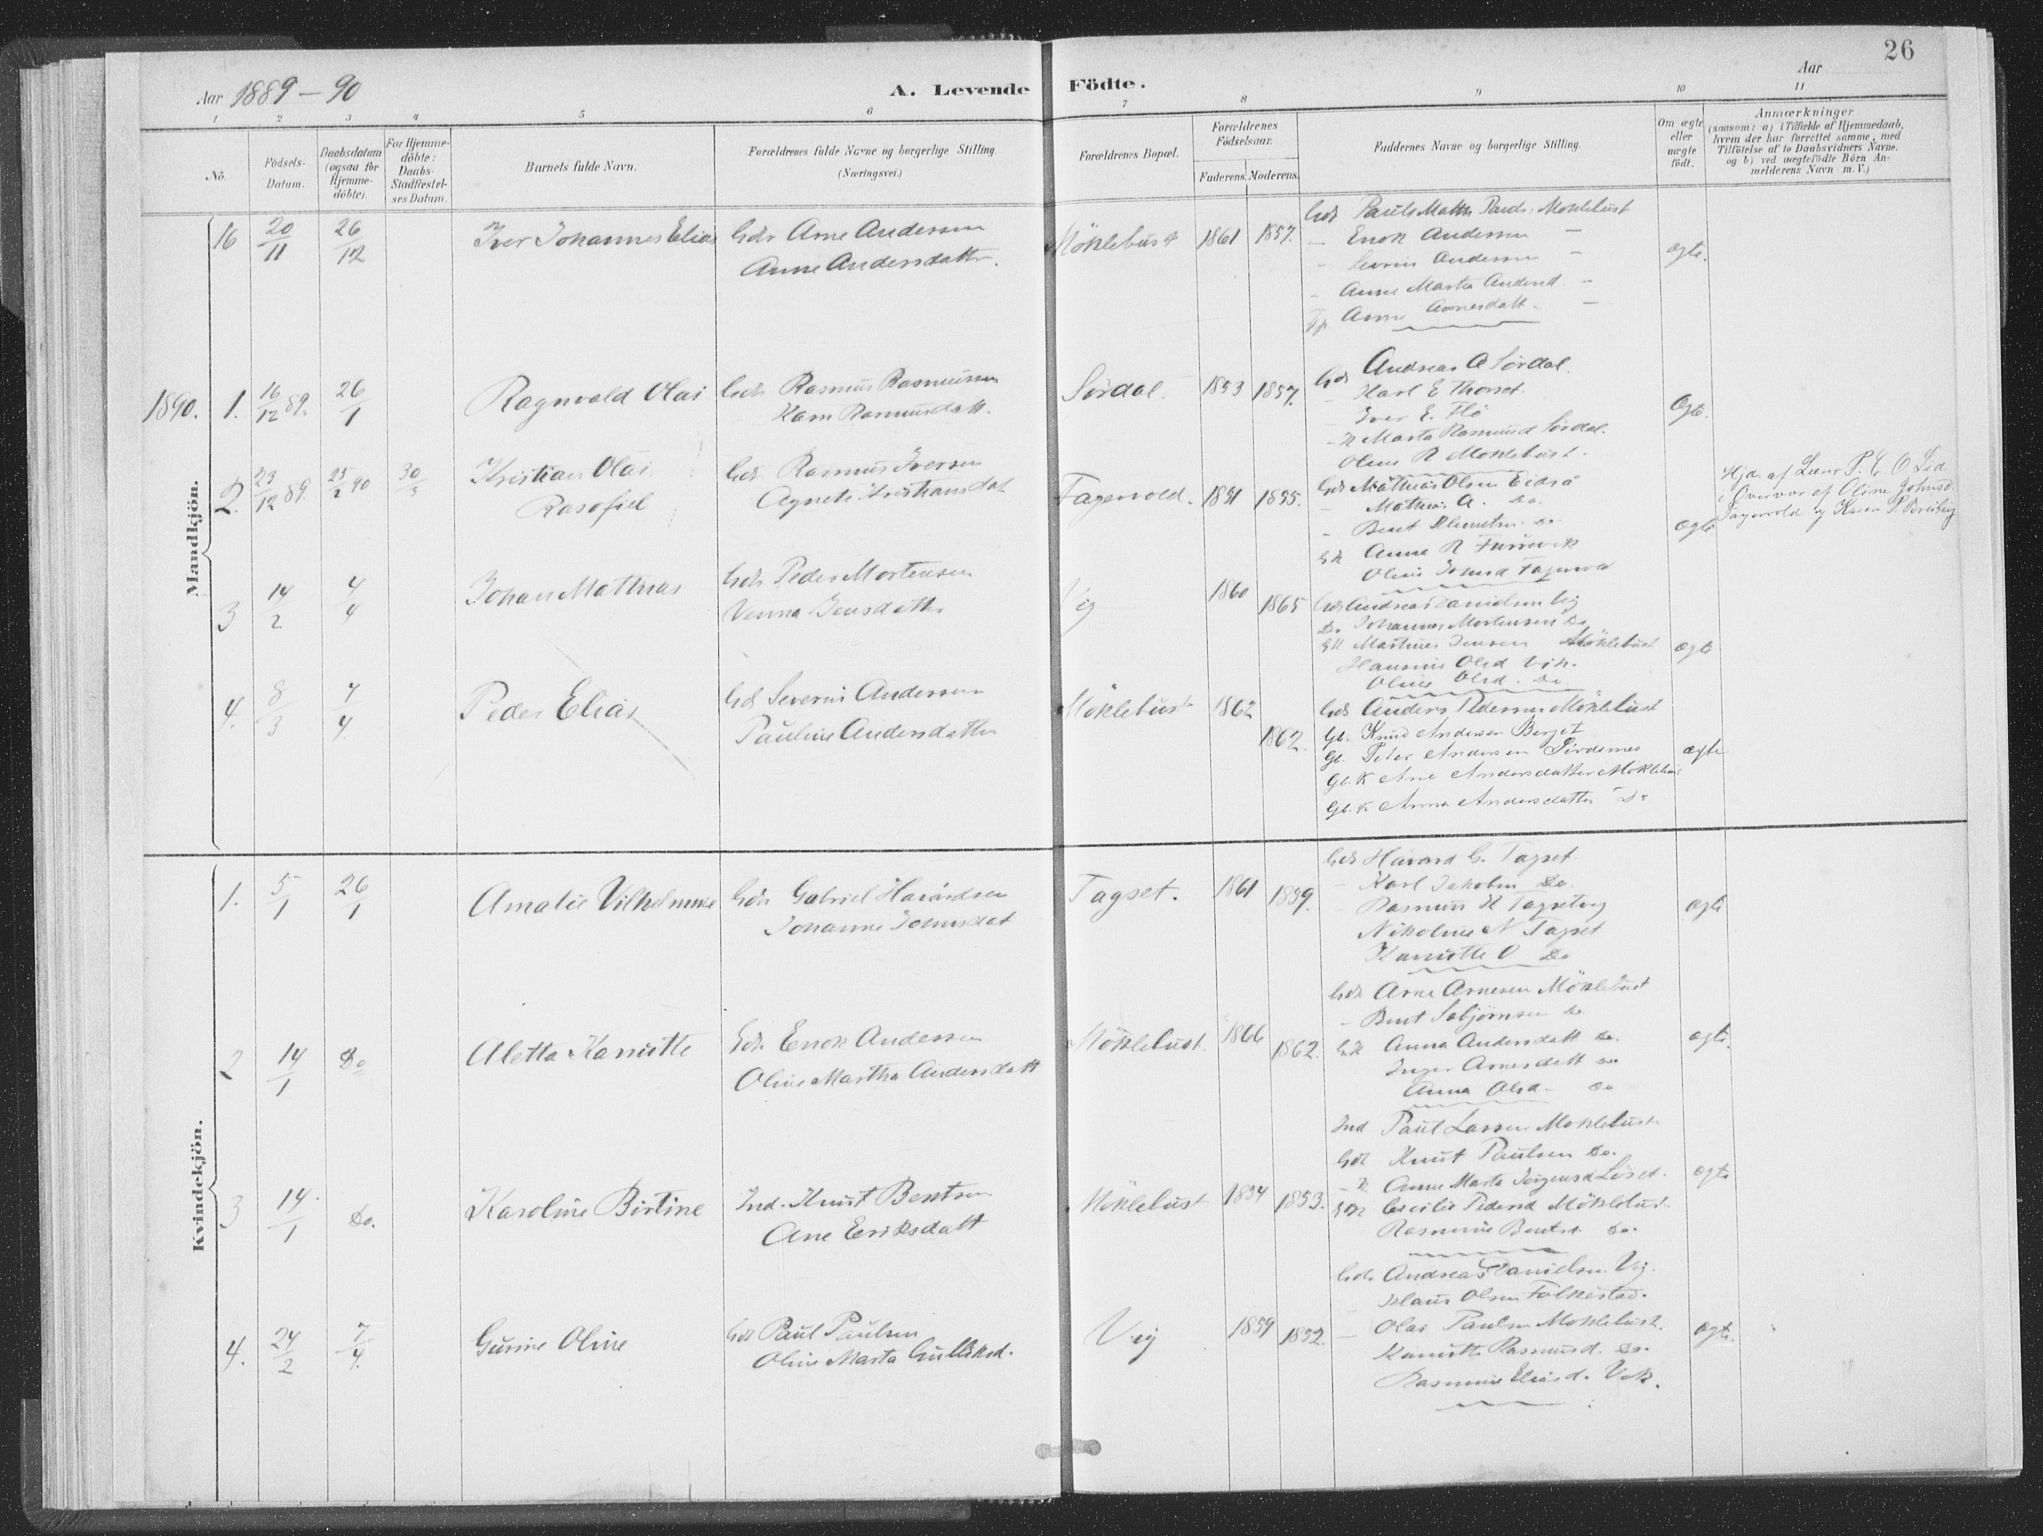 26
Aar 1889–90
A. Levende Födte.
Aar
1 2 3 4 5 6 7 8 9 10 11
No.
Födsels-Datum.
Daabsdatum (ogsaa for Hjemme-döbte).
For Hjemme-döbte: Daabs-Stadfæstel-ses Datum.
Barnets fulde Navn.
Forældrenes fulde Navne og borgerlige Stilling. (Næringsvei.)
Forældrenes Bopæl.
Forældrenes Födselsaar.
Faderens. Moderens.
Faddernes Navne og borgerlige Stilling.
Om ægte eller uægte födt.
Anmærkninger
(saasom: a) i Tilfælde af Hjemmedaab, hvem der har forrettet samme, med Tilföielse af to Daabsvidners Navne, og b) ved uægtefödte Börn An-melderens Navn m. V.)
Mandkjön.
16 20/11 26/12 Iver Johannes Elias
Gdr Arne Andersen
Anne Andersdatter.
Möklebust 1861 1857.
Enok Andersen –
Andersen –
Anne Marta Andersd –
Anne Arnesdatt –
ægte.
1890. 1. 16/12 89. 26/1 Ragnvald Olai
Gdr Rasmus Rasmussen
Karn Rasmusdatt.
Sørdal. 1853 1857.
Gdr Andreas A Sørdal.
– Karl E Thorset.
– Iver E. Flö
– K Marta Rasmusd Sørdal.
Oline R Moklebust.
Ægte.
2. 23/12 89. 25/2 90 30/3 Kristian Olai
Rasofiel
Gdr Rasmus Iversen
Agnete Kristiansdat
Fagervold. 1851 1855.
Gdr Mathias Olsen Eidsö
– Mathias A. Do.
– Bent Klemetsen Do.
GK Anne R
Oline Johnsd Fagervold
ægte
Hjd. af Lærer P. E. O. Lid
i Overvær af Oline Johnsd.
Fagervold og Karen P Breiteig
3 14/2 4/4 Johan Mathias
Gdr Peder Mortensen
Venna Jensdatter
Vig 1860 1865
Gdr Andreas Danielsen Vig
Do. Johannes Mortensen Do
GK Martines Jensen Möklebust
Hansine Olsd Vik.
Oline Olsd. Do.
ægte
4. 8/3 7/4 Peder Elias
Gdr Severin Andersen
Pauline Andersdatter
Möklebust 1862 1862.
Gdr Anders Pedersen Möklebust
Gb. Knud Andersen Berget
Gb. Peter Andersen
Gb. K Ane Andersdatter Moklebust
Gb. K Anna Andersdatter Do
ægte
Kvindekjön.
1. 5/1 26/1 Amalie Vilhelmine
Gdr Gabriel Havardsen
Johanne Johnsdat
Tagset. 1861 1859.
Gdr Havard G. Tagset
– Karl Jakobsen Do.
Rasmus H
Nikoline N Tagset
Kanutte O Do
ægte
2 14/1 Do Aletta Kanutte
Gdr. Enok Andersen
Oline Martha Andersdatt
Möklebust. 1866 1862.
Gdr Arne Arnesen Möklebust
– Bent Do
GK Anna Andersdatt Do.
Inger Arnesdatt Do
Anna Olsd – Do
ægte.
3 14/1 Do. Karoline Birtine
Ind. Knut Bentsen
Ane Eriksdatt
Möklebust 1854 1853.
Ind Paul Larsen Moklebust.
Gdr Knut Paulsen Do.
– K Anne Marta Jørgensd Løset.
GK Cecilie Pedersd Möklebust.
Rasmine Bentsd Do.
ægte
4. 24/2 7/4. Gurine Oline
Gdr Paul Paulsen
Oline Marta Gulliksd.
Vig 1859 1852.
Gdr Andreas Danielsen Vig.
Klaus Olsen Folkestad.
– Olai Paulsen Moklebust.
Kanutte Rasmusd. Do.
Rasmine Eliasd. Vik.
ægte.